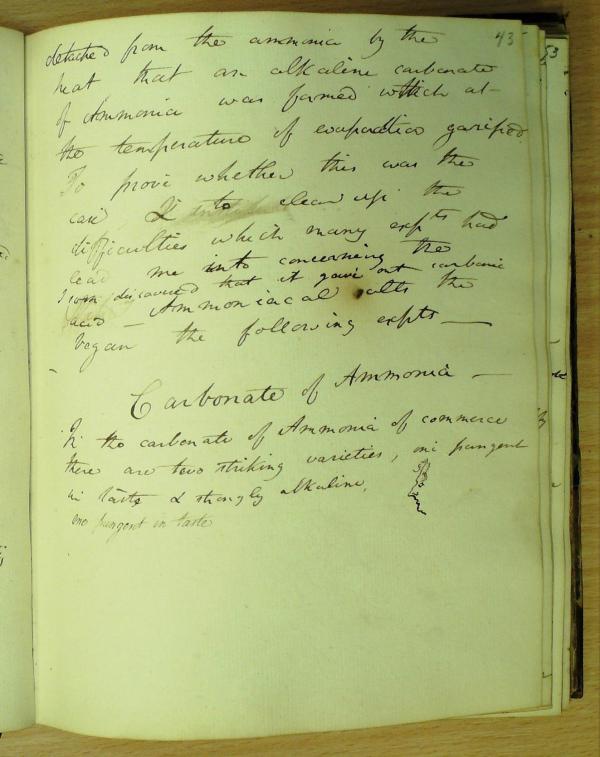 43
53
detached from the ammonia by the
heat that an alkaline carbonate
of Ammonia was formed which at
the temperature of evaporation gasified.
To prove whether this was the
case & to clear up the
difficulties which many expts had
lead me into concerning the
I soon discovered that it gave out carbonic
acid — Ammoniacal salts the
began the following expts —
Carbonate of Ammonia —
In the carbonate of Ammonia of commerce
there are two striking varieties, one pungent
in taste & strongly alkaline,
one pungent in taste